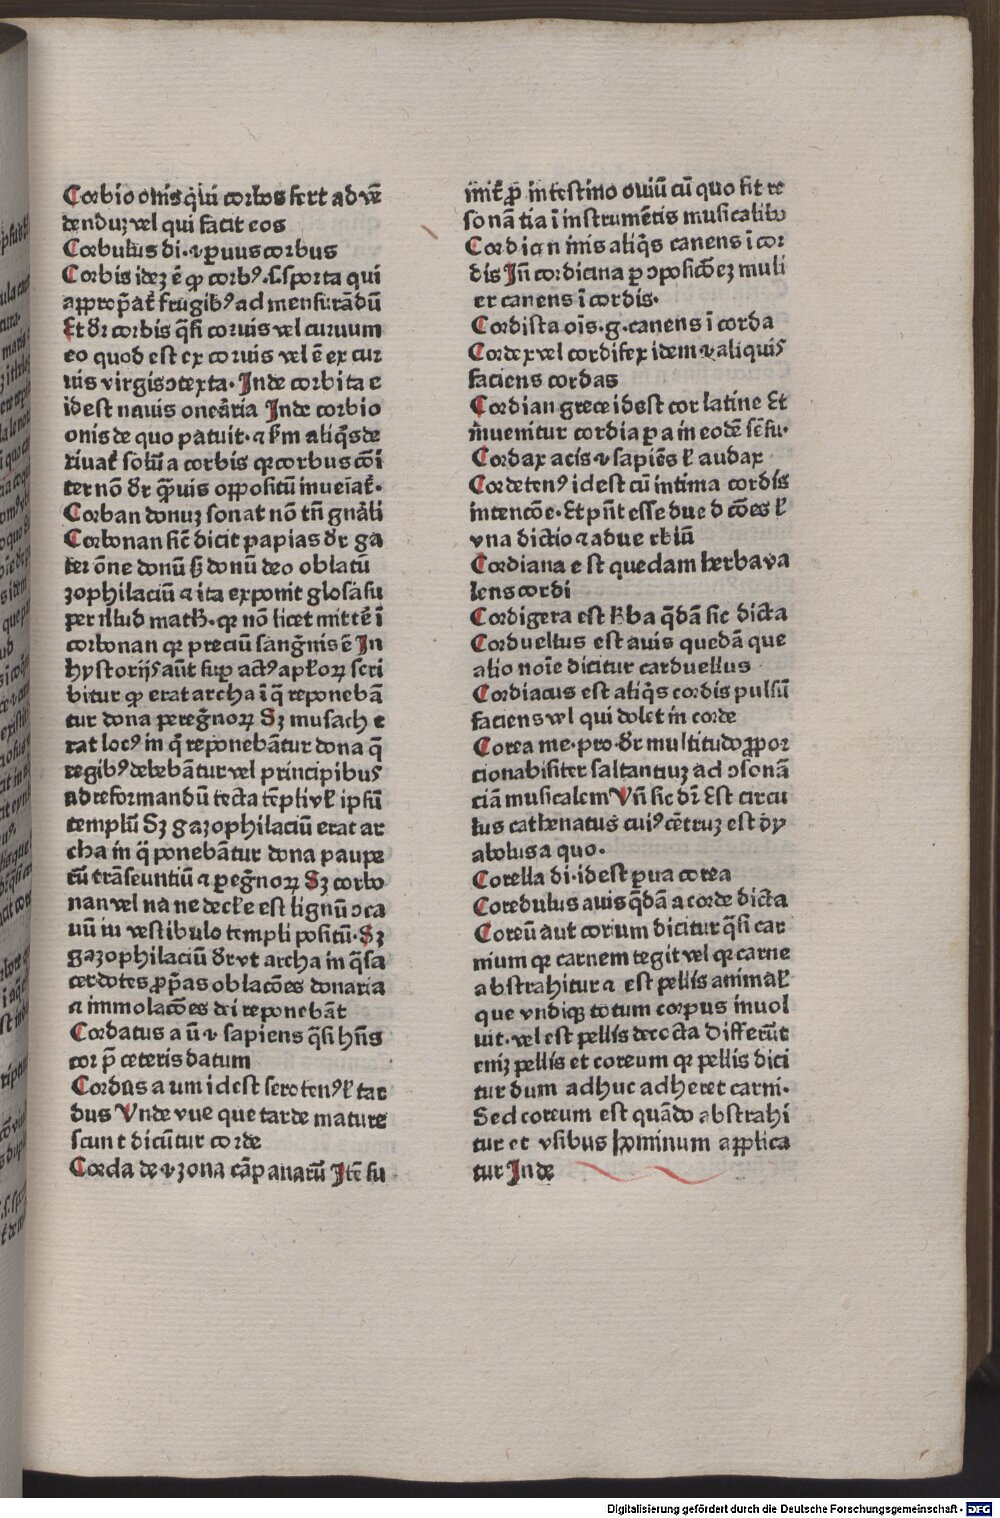 Corbio onis qui corbos fert ad vē
denduꝫ vel qui facit eos
Corbulus di·ꝛ ꝑuus corbus
Corbis ideꝫ ē qꝫ corbꝰ.l̄ sporta qui
aꝓpp̄at̄ frugibꝰ ad mensurādū
Et dr̄ corbis q̄si coruis vel curuum
eo quod est ex coruis vel ē ex cur
uis virgis ↄtexta· Inde corbita e
id est nauis onerāria Inde corbio
onis de quo patuit· ⁊ s̄m aliq̄s de
riuat̄ solū a corbis qꝛ corbus cōi
ter nō dr̄ q̄uis opposituʒ inueīat̄·
Corban donuꝫ sonat nō tn̄ gn̄ali
Corbonan sic̄ dicit papias dr̄ ga
ter ōne donū sꝫ donū deo oblatū
zophilaciū ⁊ ita exponit glosa su
per illud matħ· qꝛ nō licet mitte ī
corbonan qꝛ preciū sang̃nis ē In
hystorijs aūt suꝑ actꝰ apl̄oꝝ scri
bitur qꝫ erat archa ī q̄ reponebā
tur dona peregn̄oꝝ Sꝫ musach e
rat locꝰ in q̄ reponebātur dona q̄
regibꝰ debebātur vel principibus
ad reformandū tecta tēpli vl̄ ipsū
templū Sꝫ gazophilaciū erat ar
cha in q̄ ponebātur dona paupe
rū trāseuntiū ⁊ ꝑegn̄oꝝ Sꝫ corbo
nan vel na ne decl̄e est lignū ↄca
uū in vestibulo templi positū· Sꝫ
gazophilaciū dr̄ vt archa in q̄ sa
cerdotes ꝓpp̄as oblacōes donaria
⁊ immolacōes dei reponebāt
Cordatus a ū ꝛ sapiens q̄si hn̄s
cor p̄ ceteris datum
Cordus a um id est serotenꝰ l̄ tar
dus Vnde vue que tarde mature
scunt dicūtur corde
Corda de ꝛ zona cāpanarū Itē su
mit̄ p̄ intestino ouiū cū quo fit re
sonātia ī instrumētis musicalibꝰ
Cordicin inis aliq̄s canens ī cor
dis In̄ cordicina ꝑ ↄposicōeꝫ muli
er canens ī cordis·
Cordista oīs·g·canens ī corda
Cordex vel cordifex idem ꝛ aliquis
faciens cordas
Cordian grece id est cor latine Et
inuenitur cordia ꝑ a in eodē sēsu·
Cordax acis ꝛ sapiēs l̄ audax
Cordetenꝰ id est cū intima cordis
intencōe· Et pn̄t esse due d cōes l̄
vna dictio ⁊ aduerbiū
Cordiana est quedam herba va
lens cordi
Cordigera est h̄ba q̄dā sic dicta
Corduellus est auis quedā que
alio noīe dicitur carduellus
Cordiacus est aliq̄s cordis pulsū
faciens vel qui dolet in corde
Corea me·pro·dr̄ multitudo ꝓpor
cionabiliter saltantiuꝫ ad ↄsonā
ciā musicalem Vn̄ sic dr̄ Est circu
lus cathenatus cuiꝰ cētruꝫ est dy
abolus a quo·
Corella di·id est ꝑua corea
Coredulus auis q̄dā a corde dicta
Coreū aut corium dicitur q̄si car
nium qꝛ carnem tegit vel qꝛ carne
abstrahitur ⁊ est pellis animal̄
que vndiqꝫ totum corpus inuol
uit· vel est pellis decocta Differūt
eniꝫ pellis et coreum qꝛ pellis dici
tur dum adhuc adheret carni·
Sed coreum est quādo abstrahi
tur et vsibus hominum applica
tur Inde
Digitalisierung gefördert durch die Deutsche Forschungsgemeinschaft - DFG